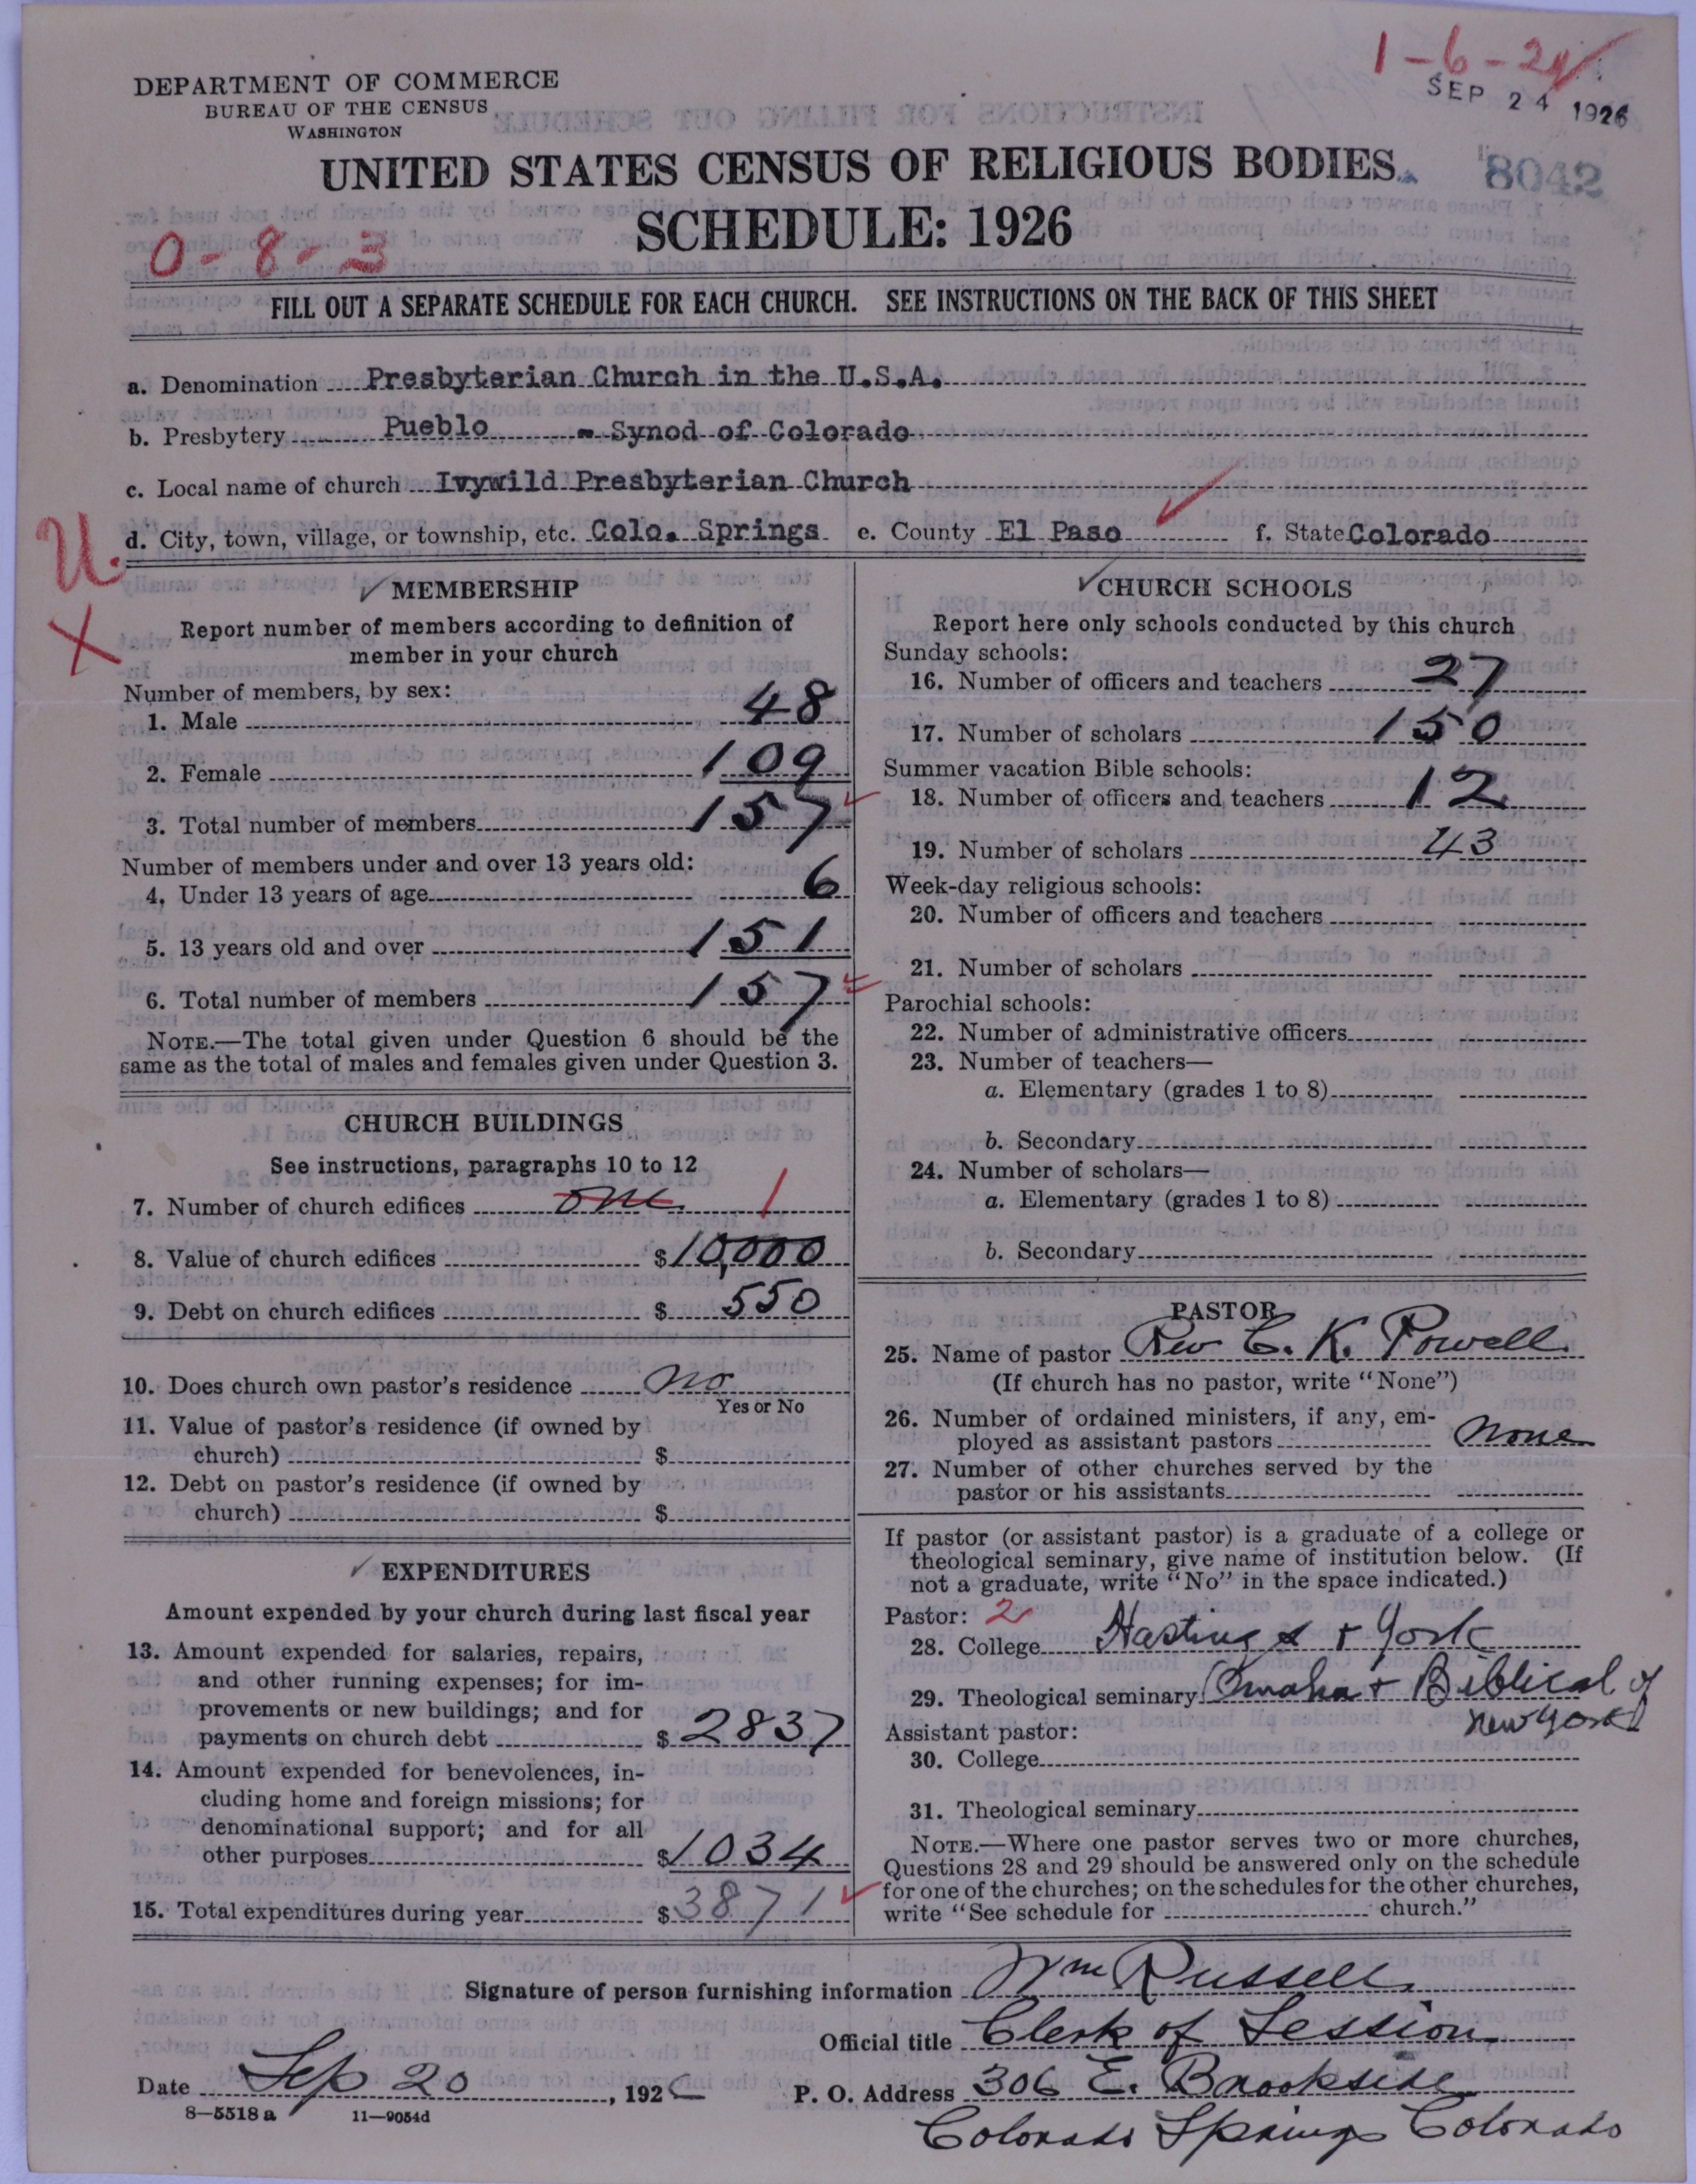 1-6-24
SEP 24 1926
DEPARTMENT OF COMMERCE
BUREAU OF THE CENSUS
WASHINGTON
UNITED STATES CENSUS OF RELIGIOUS BODIES
8042
SCHEDULE: 1926
0-8-3
FILL OUT A SEPARATE SCHEDULE FOR EACH CHURCH. SEE INSTRUCTIONS ON THE BACK OF THIS SHEET
a. Denomination Presbyterian Church in the U.S.A.
b. Presbytery Pueblo - Synod of Colorado
c. Local name of church Ivywild Presbyterian Church
d. City, town, village, or township, etc. Colo. Springs e. County El Paso f. State Colorado
U.
X
✓ MEMBERSHIP
Report number of members according to definition of
member in your church
Number of members, by sex:
1. Male 48
2. Female 109
3. Total number of members 157
Number of members under and over 13 years old:
4. Under 13 years of age 6
5. 13 years old and over 151
6. Total number of members 157
NOTE.—The total given under Question 6 should be the
same as the total of males and females given under Question 3.
CHURCH BUILDINGS
See instructions, paragraphs 10 to 12
7. Number of church edifices one 1
8. Value of church edifices $10,000
9. Debt on church edifices $ 550
10. Does church own pastor's residence no
Yes or No
11. Value of pastor's residence (if owned by
church) $
12. Debt on pastor's residence (if owned by
church) $
✓ EXPENDITURES
Amount expended by your church during last fiscal year
13. Amount expended for salaries, repairs,
and other running expenses; for im-
provements or new buildings; and for
payments on church debt $ 2837
14. Amount expended for benevolences, in-
cluding home and foreign missions; for
denominational support; and for all
other purposes $ 1034
15. Total expenditures during year $ 3871
✓ CHURCH SCHOOLS
Report here only schools conducted by this church
Sunday schools:
16. Number of officers and teachers 27
17. Number of scholars 150
Summer vacation Bible schools:
18. Number of officers and teachers 12
19. Number of scholars 43
Week-day religious schools:
20. Number of officers and teachers
21. Number of scholars
Parochial schools:
22. Number of administrative officers
23. Number of teachers—
a. Elementary (grades 1 to 8)
b. Secondary
24. Number of scholars—
a. Elementary (grades 1 to 8)
b. Secondary
PASTOR
25. Name of pastor Rev C. K. Powell
(If church has no pastor, write "None")
26. Number of ordained ministers, if any, em-
ployed as assistant pastors none
27. Number of other churches served by the
pastor or his assistants
If pastor (or assistant pastor) is a graduate of a college or
theological seminary, give name of institution below. (If
not a graduate, write "No" in the space indicated.)
Pastor: 2
28. College Hastings + York
29. Theological seminary Omaha + Biblical of
New York
Assistant pastor:
30. College
31. Theological seminary
NOTE.—Where one pastor serves two or more churches,
Questions 28 and 29 should be answered only on the schedule
for one of the churches; on the schedules for the other churches,
write "See schedule for church."
Signature of person furnishing information Wm Russell
Official title Clerk of Session
Date Sep 20, 1926 P. O. Address 306 E. Brookside
8—5518 a 11—9054d
Colorado Springs Colorado